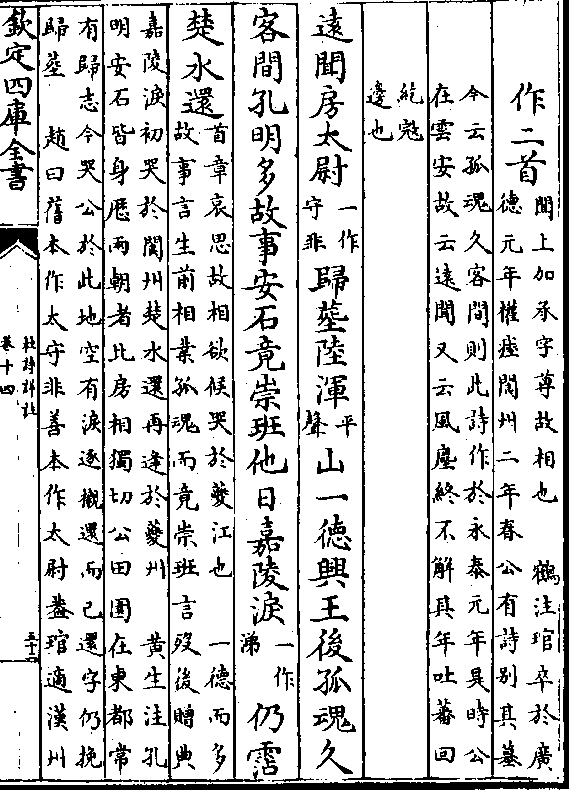 作二首
聞上加承字尊故相也　鶴注琯卒於廣
德元年權瘞閬州二年春公有詩别其墓
今云孤魂久客間則此詩作於永泰元年是時公
在雲安故云遠聞又云風塵終不解其年吐蕃回
紇冦
邊也
遠聞房太尉一作守非歸塟陸渾平聲山一德興王後孤魂久
客間孔明多故事安石竟崇班他日嘉陵淚一作涕仍霑
楚水還
首章哀思故相欲候哭於夔江也　一德而多
故事言生前相業孤魂而竟崇班言殁後贈典
嘉陵淚初哭於閬州楚水還再逢於夔州　黄生注孔
明安石皆身歴兩朝者比房相獨切公田園在東都常
有歸志今哭公於此地空有淚逐櫬還而已還字仍挽
歸塟　趙曰舊本作太守非善本作太尉葢琯適漢州
欽定四庫全書
杜詩詳註
卷十四